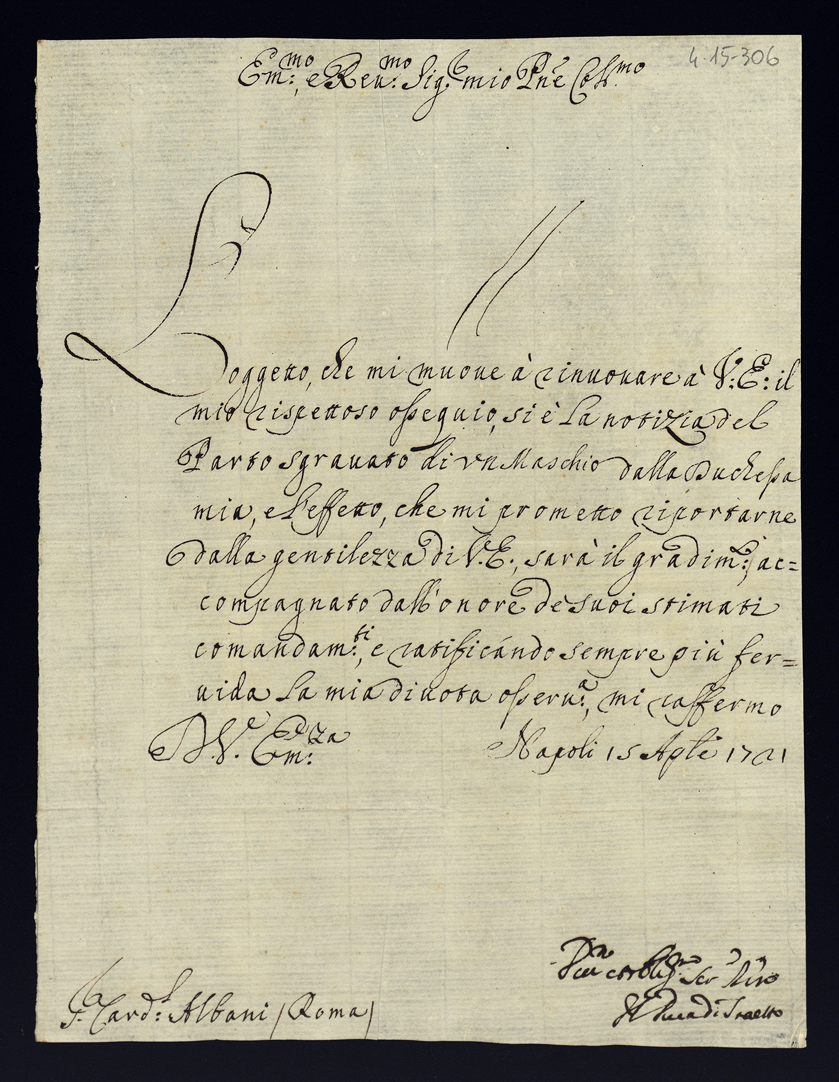 4-15-306
Em.mo, e Reu.mo Sig.r mio Pne Coll.mo
Soggetto, che mi muoue à rinuouare à V:E: il
mio rispettoso ossequio, si è la notizia del
Parto sgrauato di vn Maschio dalla Duchessa
mia, e l'effetto, che mi prometto riportarne
dalla gentilezza di V.E., sarà il gradim.to, ac=
compagnato dall'onore de suoi stimati
comandam.ti, e ratificando sempre più fer=
uida la mia diuota osseru.a, mi raffermo
D.V. Em.za
Napoli 15 Aple 1721
Diu.mo et obblig.mo Ser.
Il Duca di
S.r Card.l Albani (Roma)